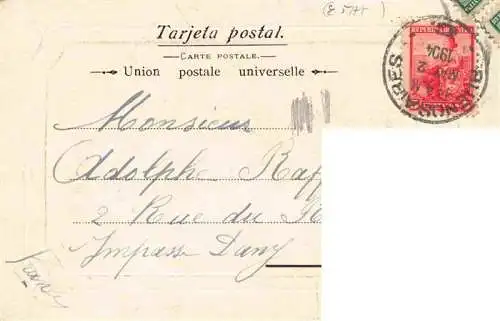 Tarjeta postal.
CARTE POSTALE.
Union postale universelle
BUENOS AIRES
2
1904
Monsieur
Adolphe Raff
2 Rue du
Impasse Dany
France